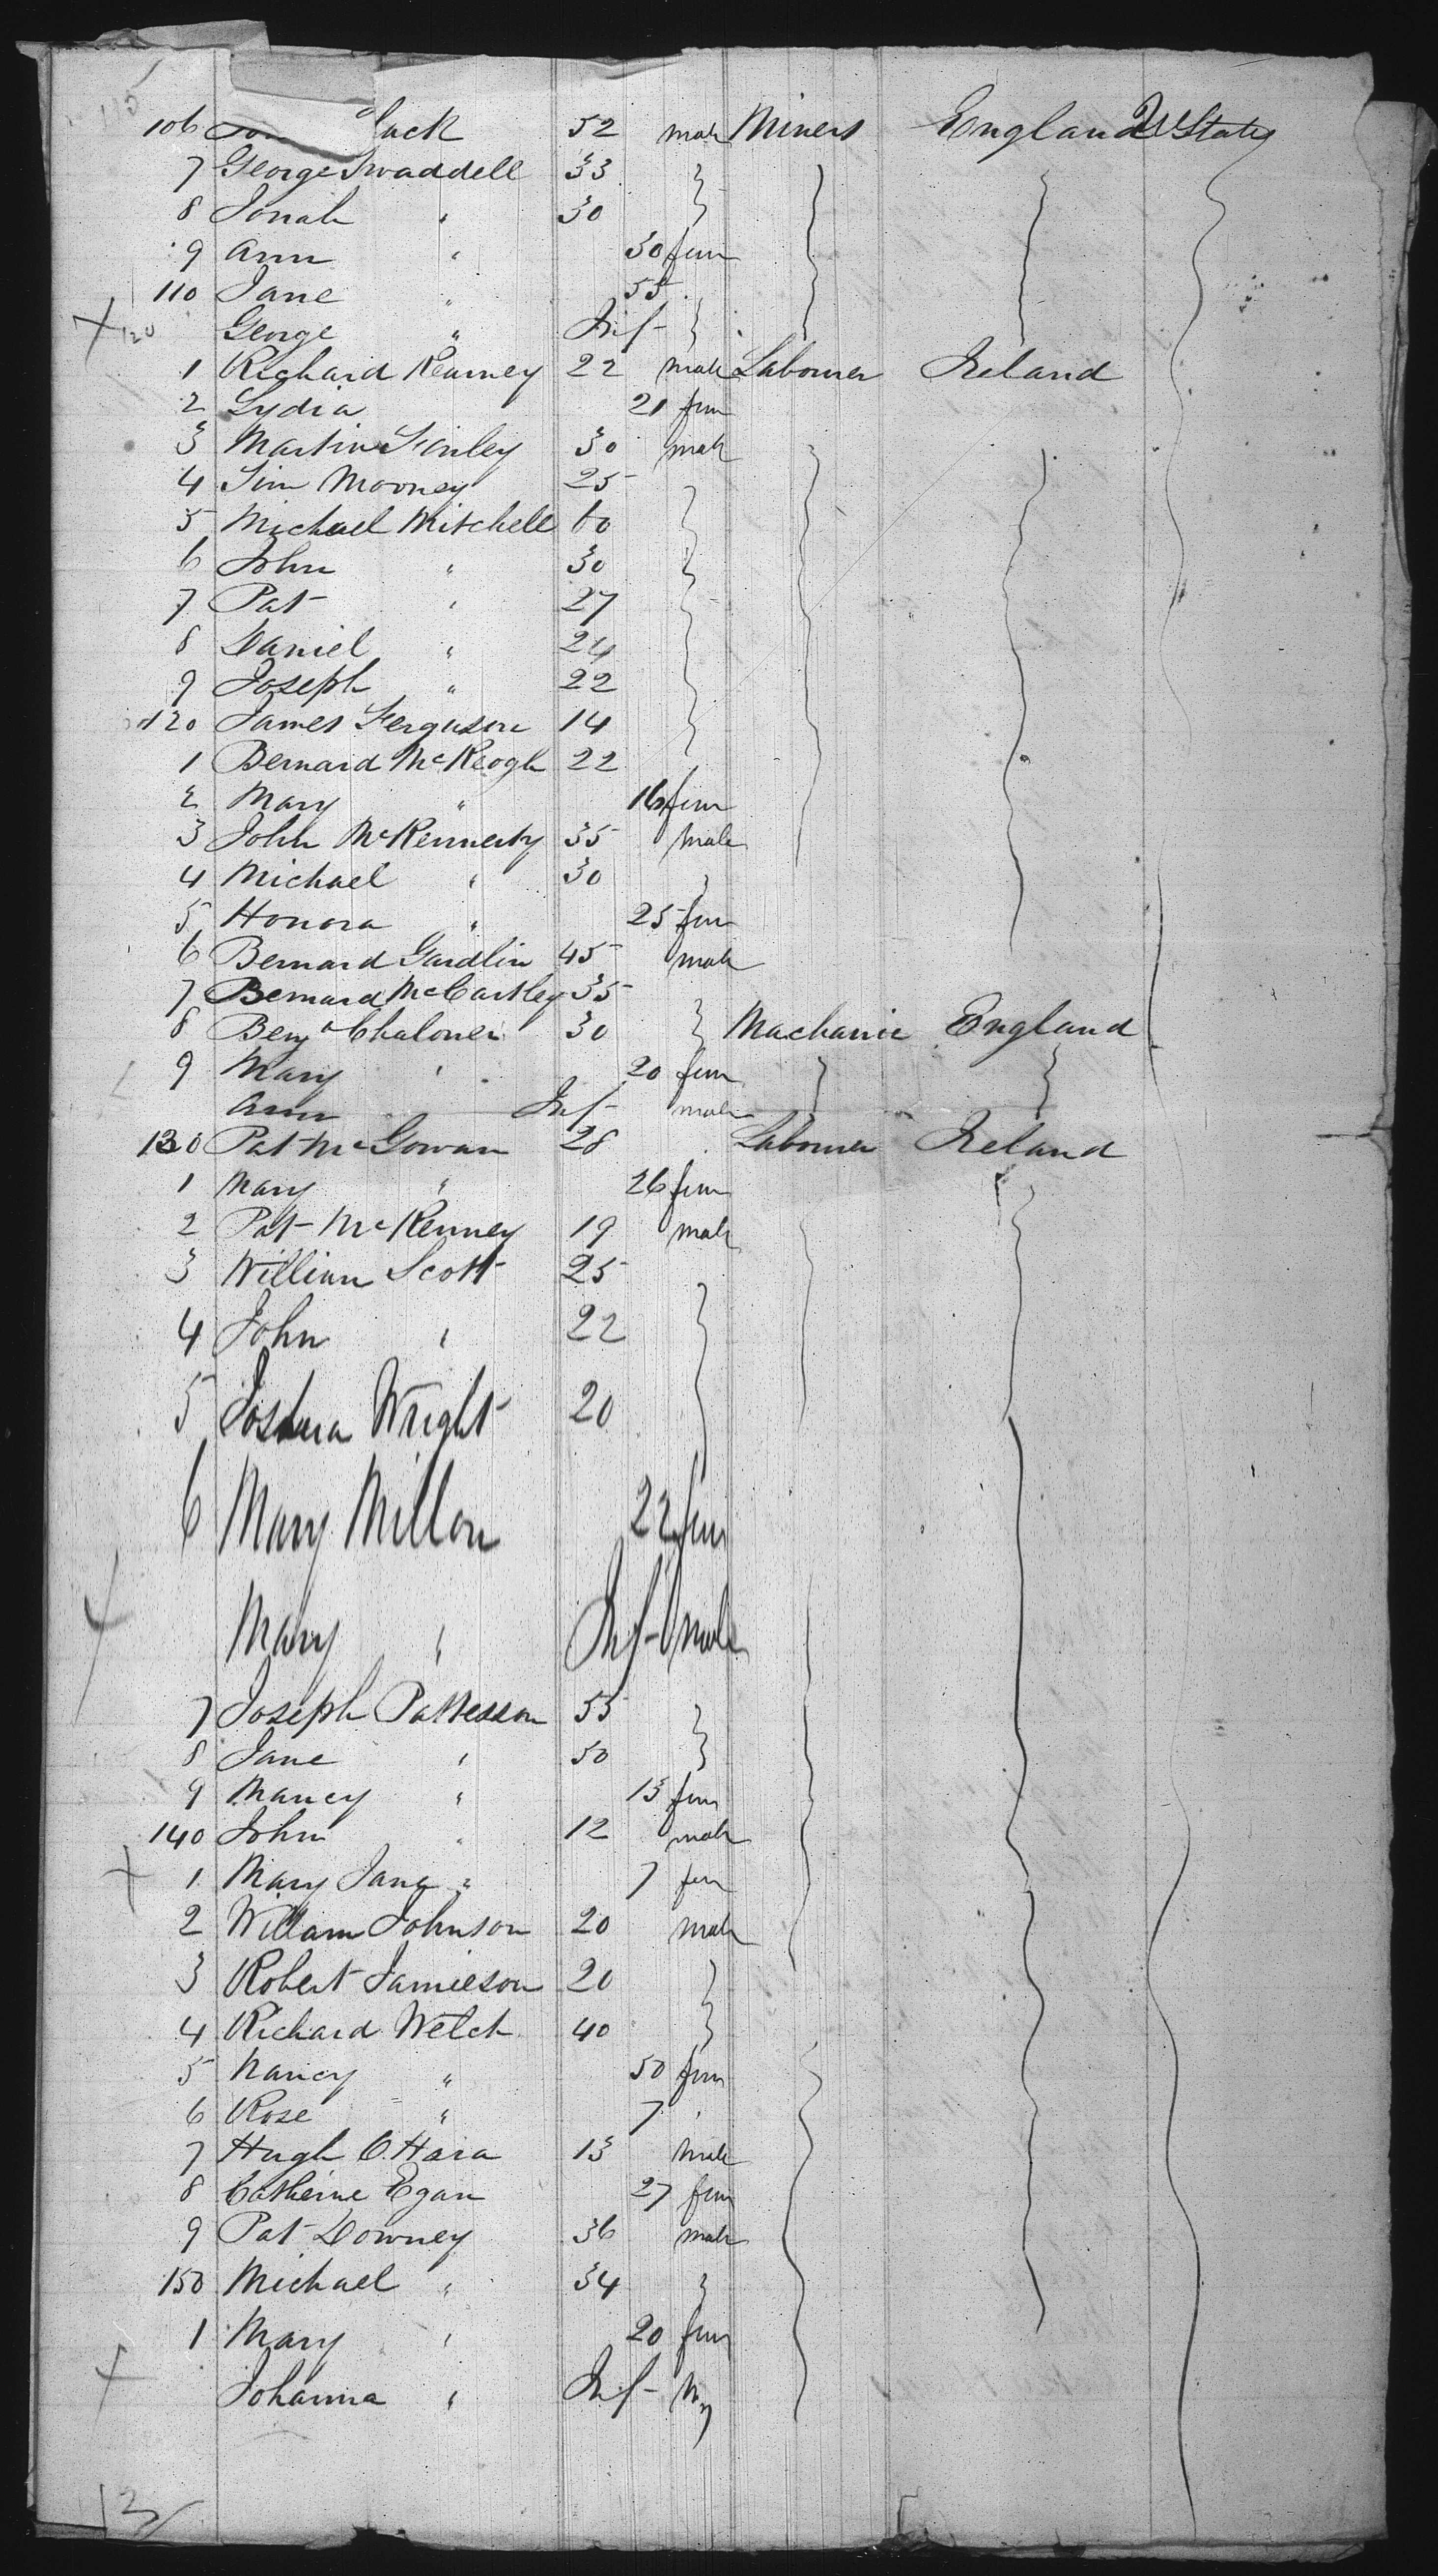 106 Jack 52 male Miners England U States
7 George Swaddell 33
8 Jonah " 30
9 Ann " 30 fem
110 Jane " 55
George " Inf
1 Richard Kearney 22 male Labourer Ireland
2 Lydia 21 fem
3 Martin Finley 30 male
4 Tim Mooney 25
5 Michael Mitchell 60
6 John " 30
7 Pat " 27
8 Daniel " 24
9 Joseph " 22
120 James Ferguson 14
1 Bernard McKeogh 22
2 Mary " 16 fem
3 John McKennerty 35 male
4 Michael " 30
5 Honora " 25 fem
6 Bernard Gardlin 45 male
7 Bernard McCartley 35
8 Benj Chaloner 30 Machanic England
9 Mary " 20 fem
Ann Inf male
130 Pat McGowan 28 Labourer Ireland
1 Mary " 26 fem
2 Pat McKenney 19 male
3 William Scott 25
4 John " 22
5 Joshua Wright 20
6 Mary Millon 22 fem
Mary " Inf male
7 Joseph Patterson 55
8 Jane " 50
9 Nancy " 13 fem
140 John " 12 male
1 Mary Jane " 7 fem
2 William Johnson 20 male
3 Robert Jamieson 20
4 Richard Welch 40
5 Nancy " 50 fem
6 Rose " 7 "
7 Hugh O.Hara 13 male
8 Catherine Egan 27 fem
9 Pat Downey 36 male
150 Michael " 34
1 Mary " 20 fem
Johanna " Inf